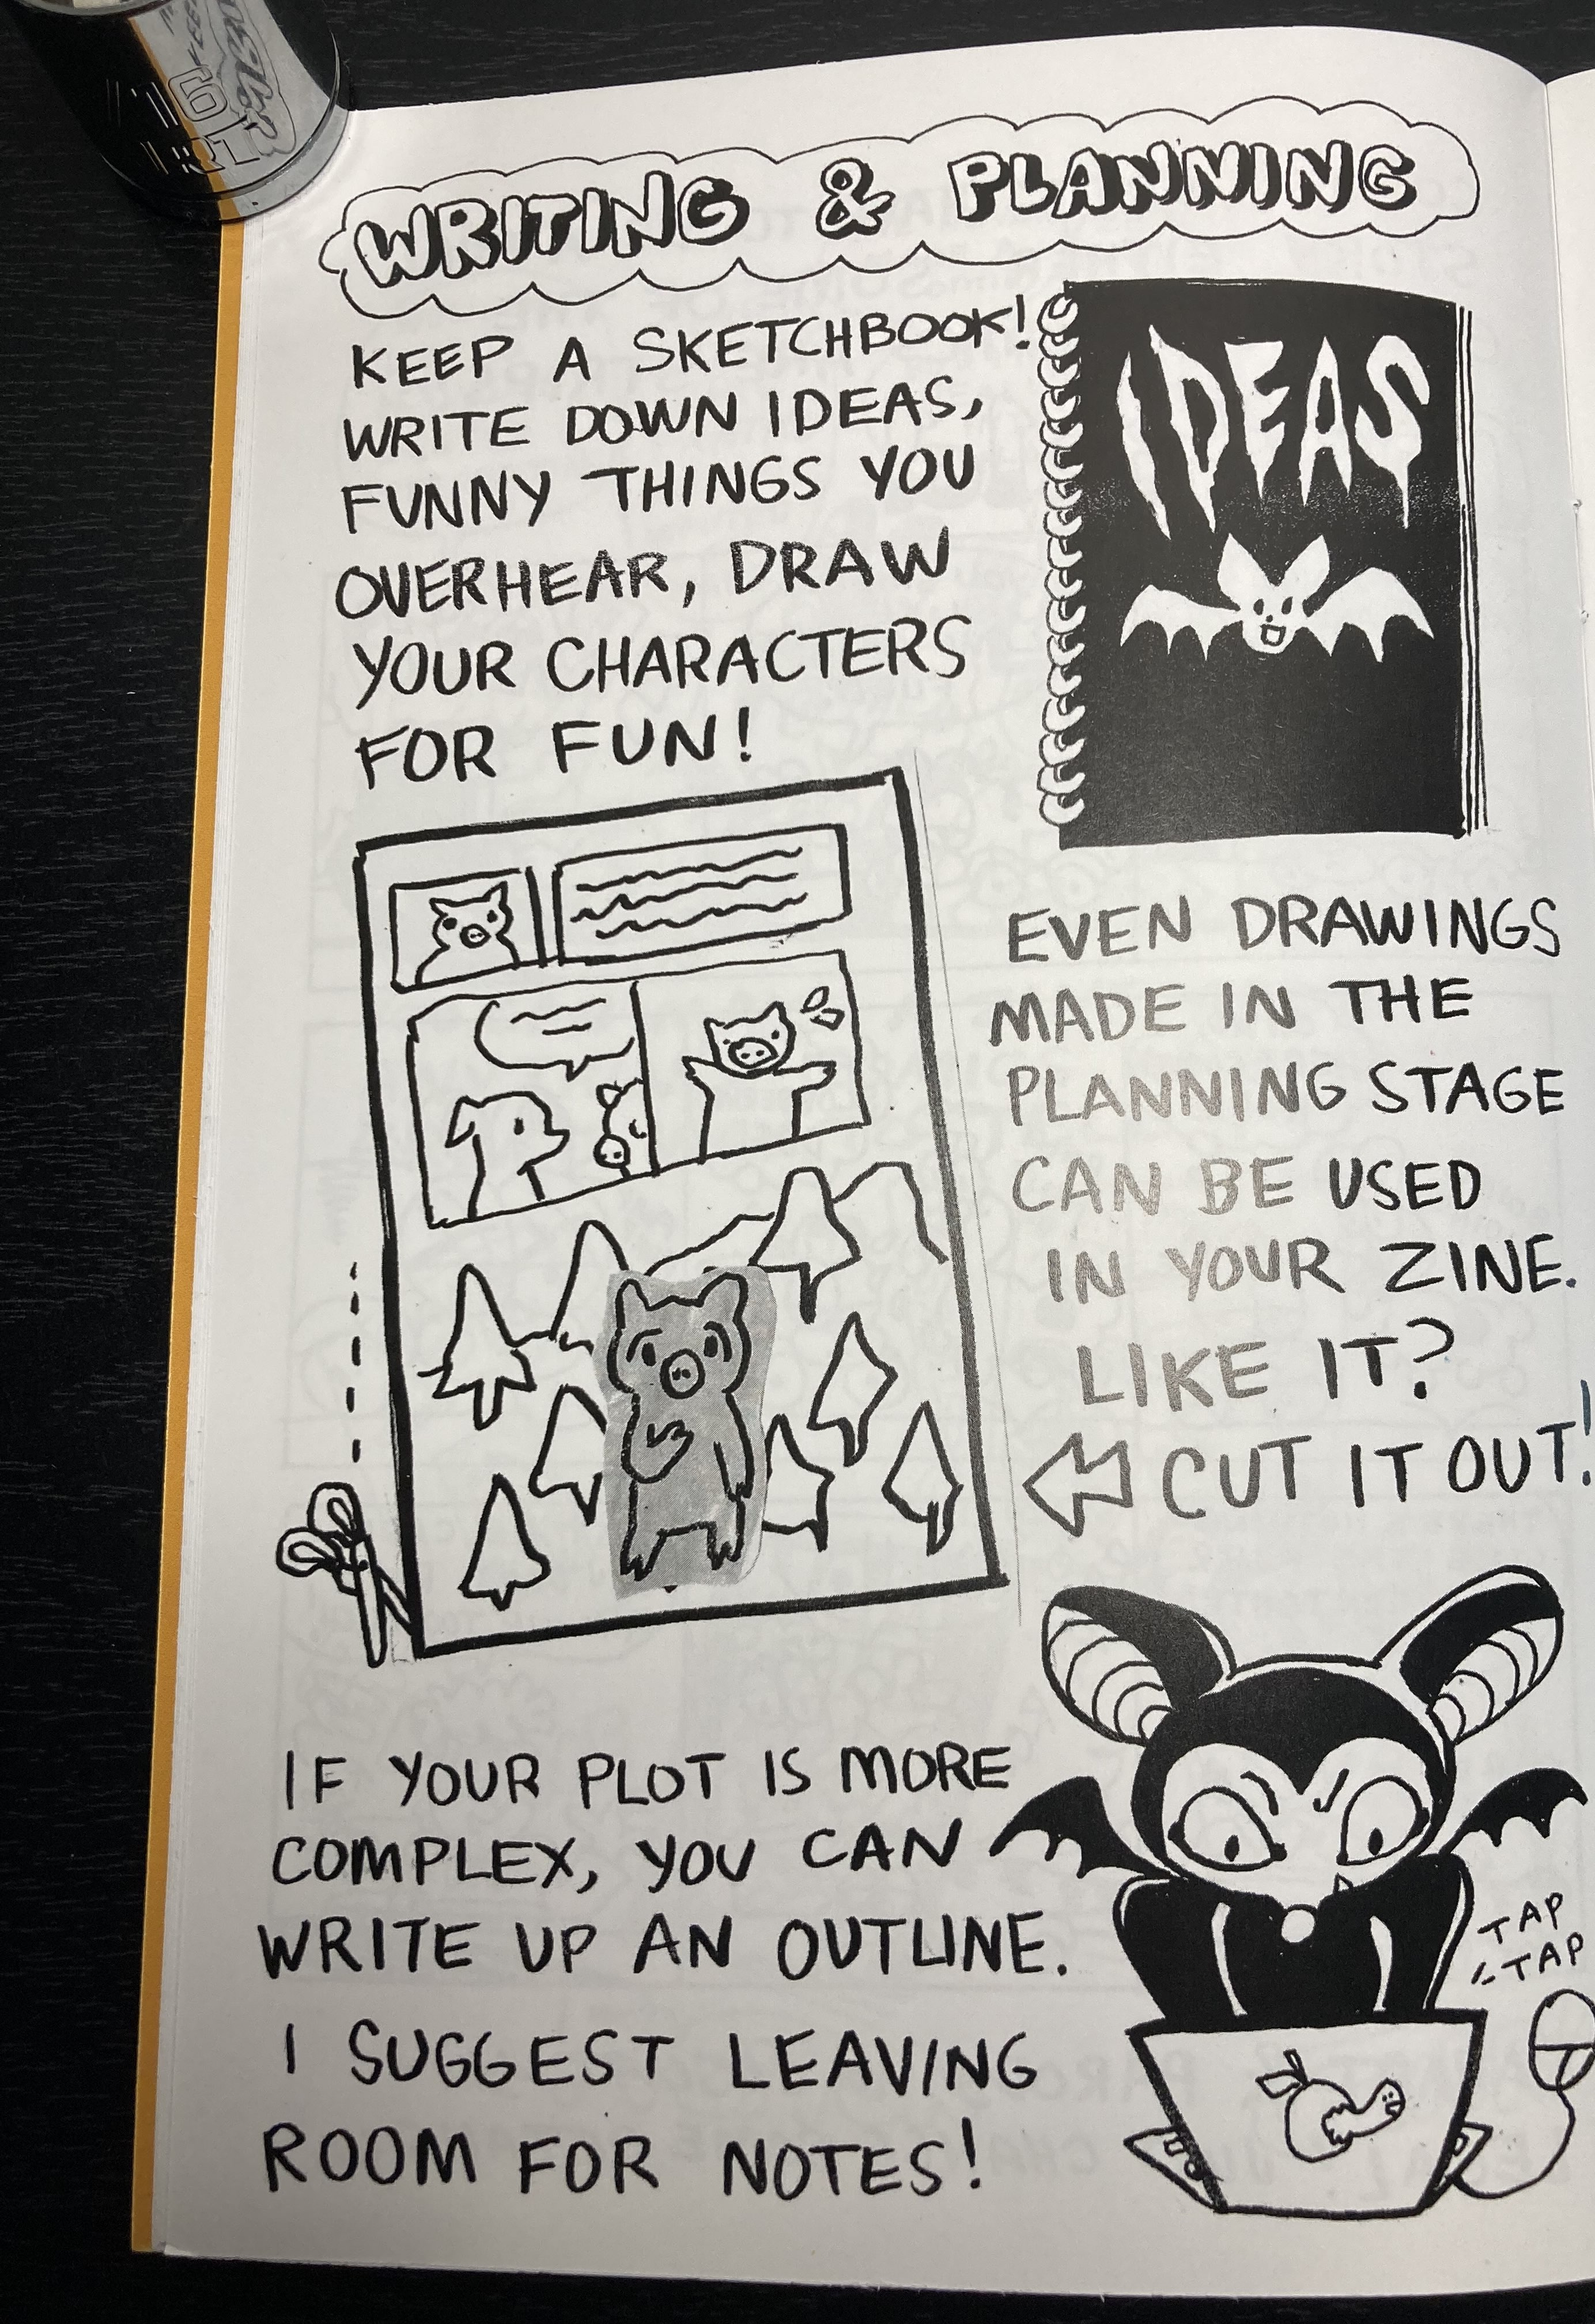 WRITING & PLANNING
KEEP A SKETCHBOOK!
WRITE DOWN IDEAS,
FUNNY THINGS YOU
OVERHEAR, DRAW
YOUR CHARACTERS
FOR FUN!
IDEAS
EVEN DRAWINGS
MADE IN THE
PLANNING STAGE
CAN BE USED
IN YOUR ZINE.
LIKE IT?
CUT IT OUT!
IF YOUR PLOT IS MORE
COMPLEX, YOU CAN
WRITE UP AN OUTLINE.
I SUGGEST LEAVING
ROOM FOR NOTES!
TAP
TAP